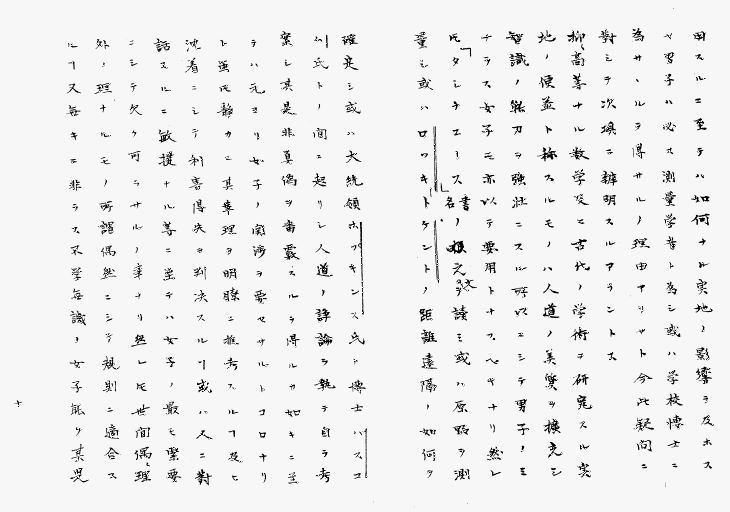 用スルニ至テハ如何ナル実地ノ影響ヲ及ホス
ヤ習子ハ必ス測量学者ト為シ或ハ学校博士ニ
為サヽルヲ得サルノ理由アリヤト今此疑問ニ
對シテ次條ニ辨明スルアラントス
抑高尊ナル数学及ニ古代ノ学術ヲ研究スル実
地ノ便益ト称スルモノハ人道ノ美質ヲ擴充シ
智識ノ能力ヲ強壮ニスル所以ニシテ男子ノミ
ナラス女子モ亦以テ要用トナスヘキナリ然レ
氏タシチユース名書ノ元文ヲ讀ミ或ハ原野ヲ測
量シ或ハロツキトケントノ距離遠隔ノ如何ヲ
確定シ或ハ大統領ホプキンス氏ト博士ハスコ
ム氏トノ間ニ起リシ人道ノ諍論ヲ執テ自ラ考
案シ其是非真偽ヲ審覈スルヲ得ルカ如キニ至
テハ元ヨリ女子ノ関渉ヲ要セサルトコロナリ
ト雖氏静カニ其事理ヲ明瞭ニ推考スルヿ及ヒ
沈着ニシテ利害得失ヲ判决スルヿ或ハ人ニ對
話スルニ敏捷ナル等ニ至テハ女子ノ最モ緊要
ニシテ欠ク可ラサルノ事ナリ然レ氏世間偶理
外ノ理ナルモノ所謂偶然ニシテ規則ニ適合ス
ルヿ又毎キニ非ラス不学無識ノ女子能ク某是